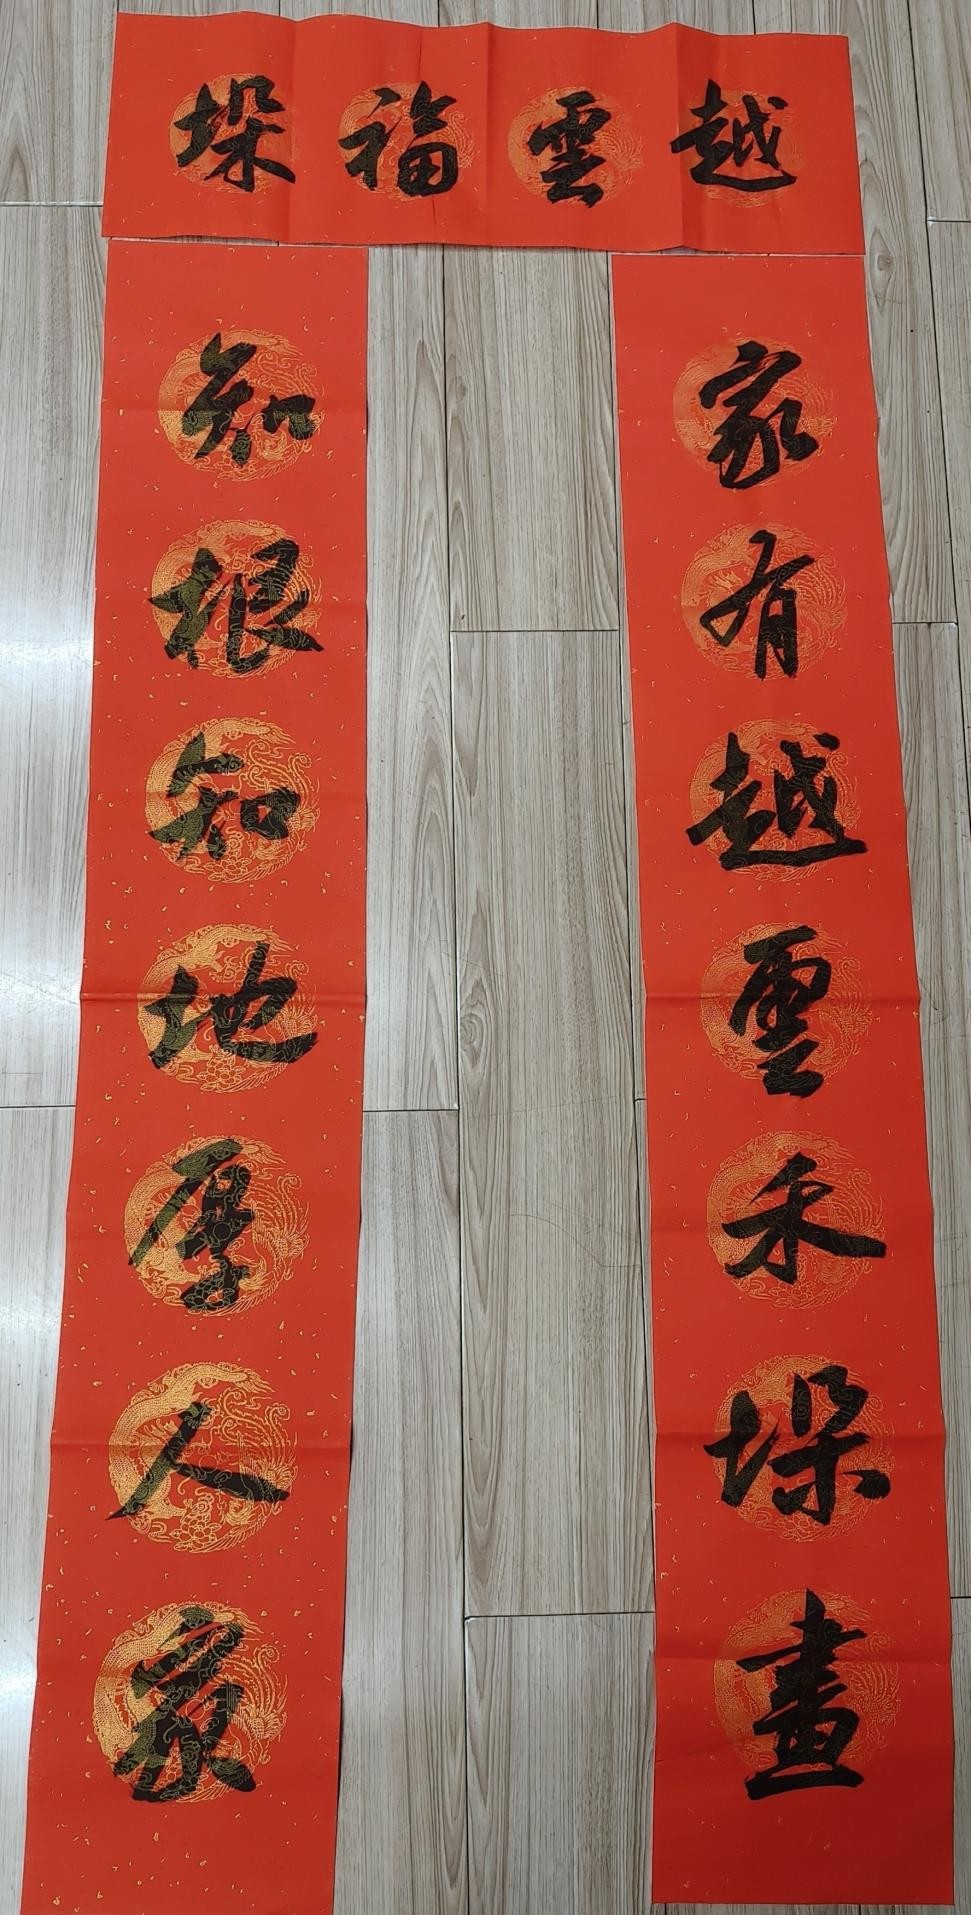 越雲福垛
家有越雲禾垛畫
知根知地厚人家